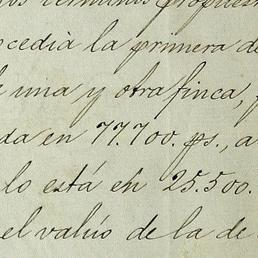 los terminos propues
ocedia la primera de
una y otra finca,
da en 77.700. ps., a
lo está en 25.500.
el valúo de la de